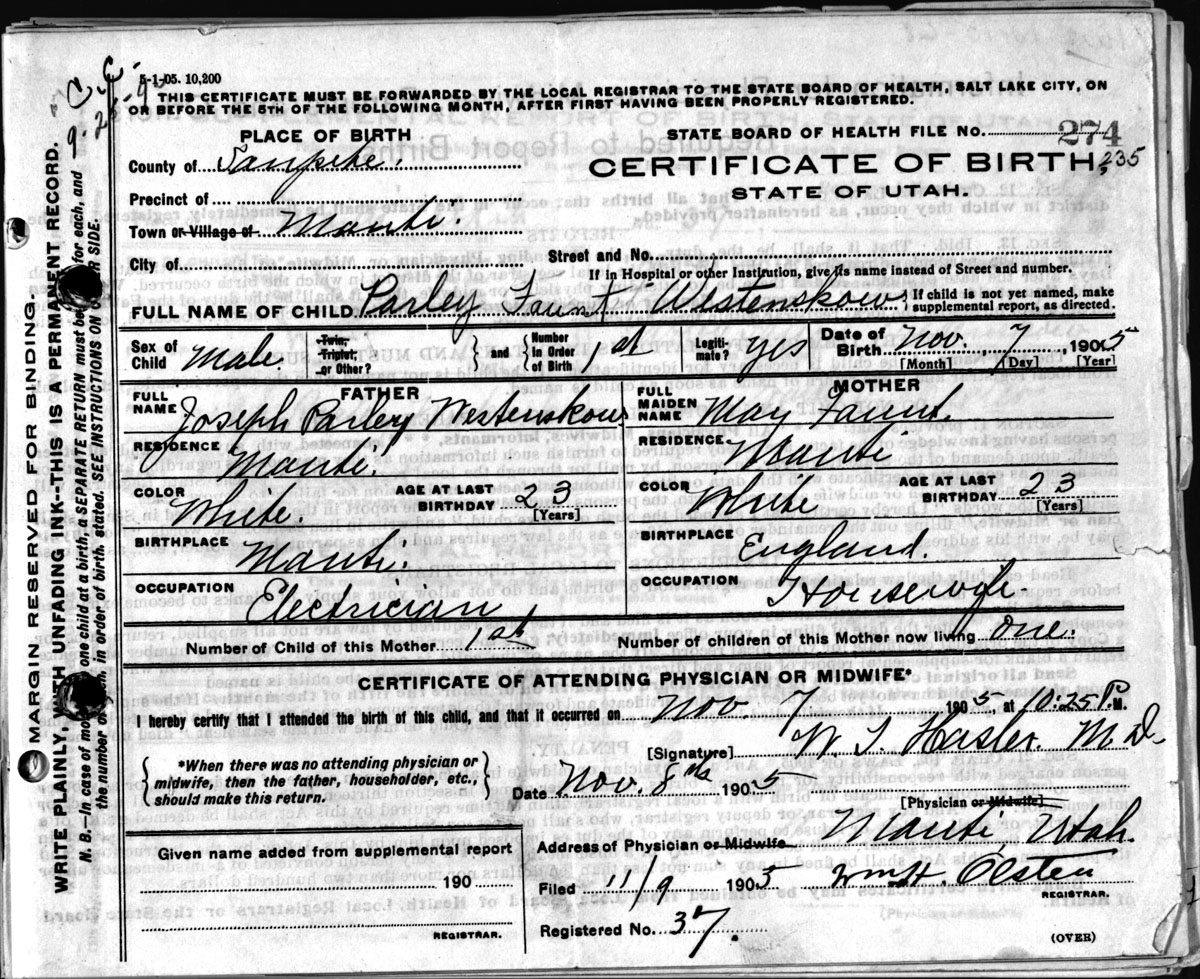 5-1-05. 10,200
THIS CERTIFICATE MUST BE FORWARDED BY THE LOCAL REGISTRAR TO THE STATE BOARD OF HEALTH, SALT LAKE CITY, ON
OR BEFORE THE 5TH OF THE FOLLOWING MONTH, AFTER FIRST HAVING BEEN PROPERLY REGISTERED.
PLACE OF BIRTH
STATE BOARD OF HEALTH FILE NO. 274
County of Sanpete.
CERTIFICATE OF BIRTH, 235
STATE OF UTAH.
Precinct of
Town or Village of Manti.
Street and No.
City of
If in Hospital or other Institution, give its name instead of Street and number.
FULL NAME OF CHILD Parley Faunt Westenskow { If child is not yet named, make supplemental report, as directed.
Sex of Child Male. Twin, Triplet, or Other? } and { Number in Order of Birth 1st Legitimate? yes Date of Birth Nov. 7, 1905
[Month] [Day] [Year]
FATHER MOTHER
FULL NAME Joseph Parley Westenskow FULL MAIDEN NAME May Faunt.
RESIDENCE Manti. RESIDENCE Manti
COLOR White. AGE AT LAST BIRTHDAY 23 [Years] COLOR White AGE AT LAST BIRTHDAY 23 [Years]
BIRTHPLACE Manti. BIRTHPLACE England.
OCCUPATION Electrician OCCUPATION Housewife
Number of Child of this Mother 1st Number of children of this Mother now living one.
CERTIFICATE OF ATTENDING PHYSICIAN OR MIDWIFE*
I hereby certify that I attended the birth of this child, and that it occurred on Nov. 7. 1905, at 10:25 P.M.
[Signature] W. T. Hasler. M.D.
{ *When there was no attending physician or midwife, then the father, householder, etc., should make this return. }
Date Nov. 8th 1905
[Physician or Midwife]
Address of Physician or Midwife Manti, Utah.
Given name added from supplemental report
190
Filed 11/9 1905 Wm H Olsten
REGISTRAR.
REGISTRAR.
Registered No. 37.
(OVER)
MARGIN RESERVED FOR BINDING.
WRITE PLAINLY, WITH UNFADING INK--THIS IS A PERMANENT RECORD.
N. B.--In case of more one child at a birth, a SEPARATE RETURN must be for each, and
the number of in order of birth, stated. SEE INSTRUCTIONS ON SIDE.